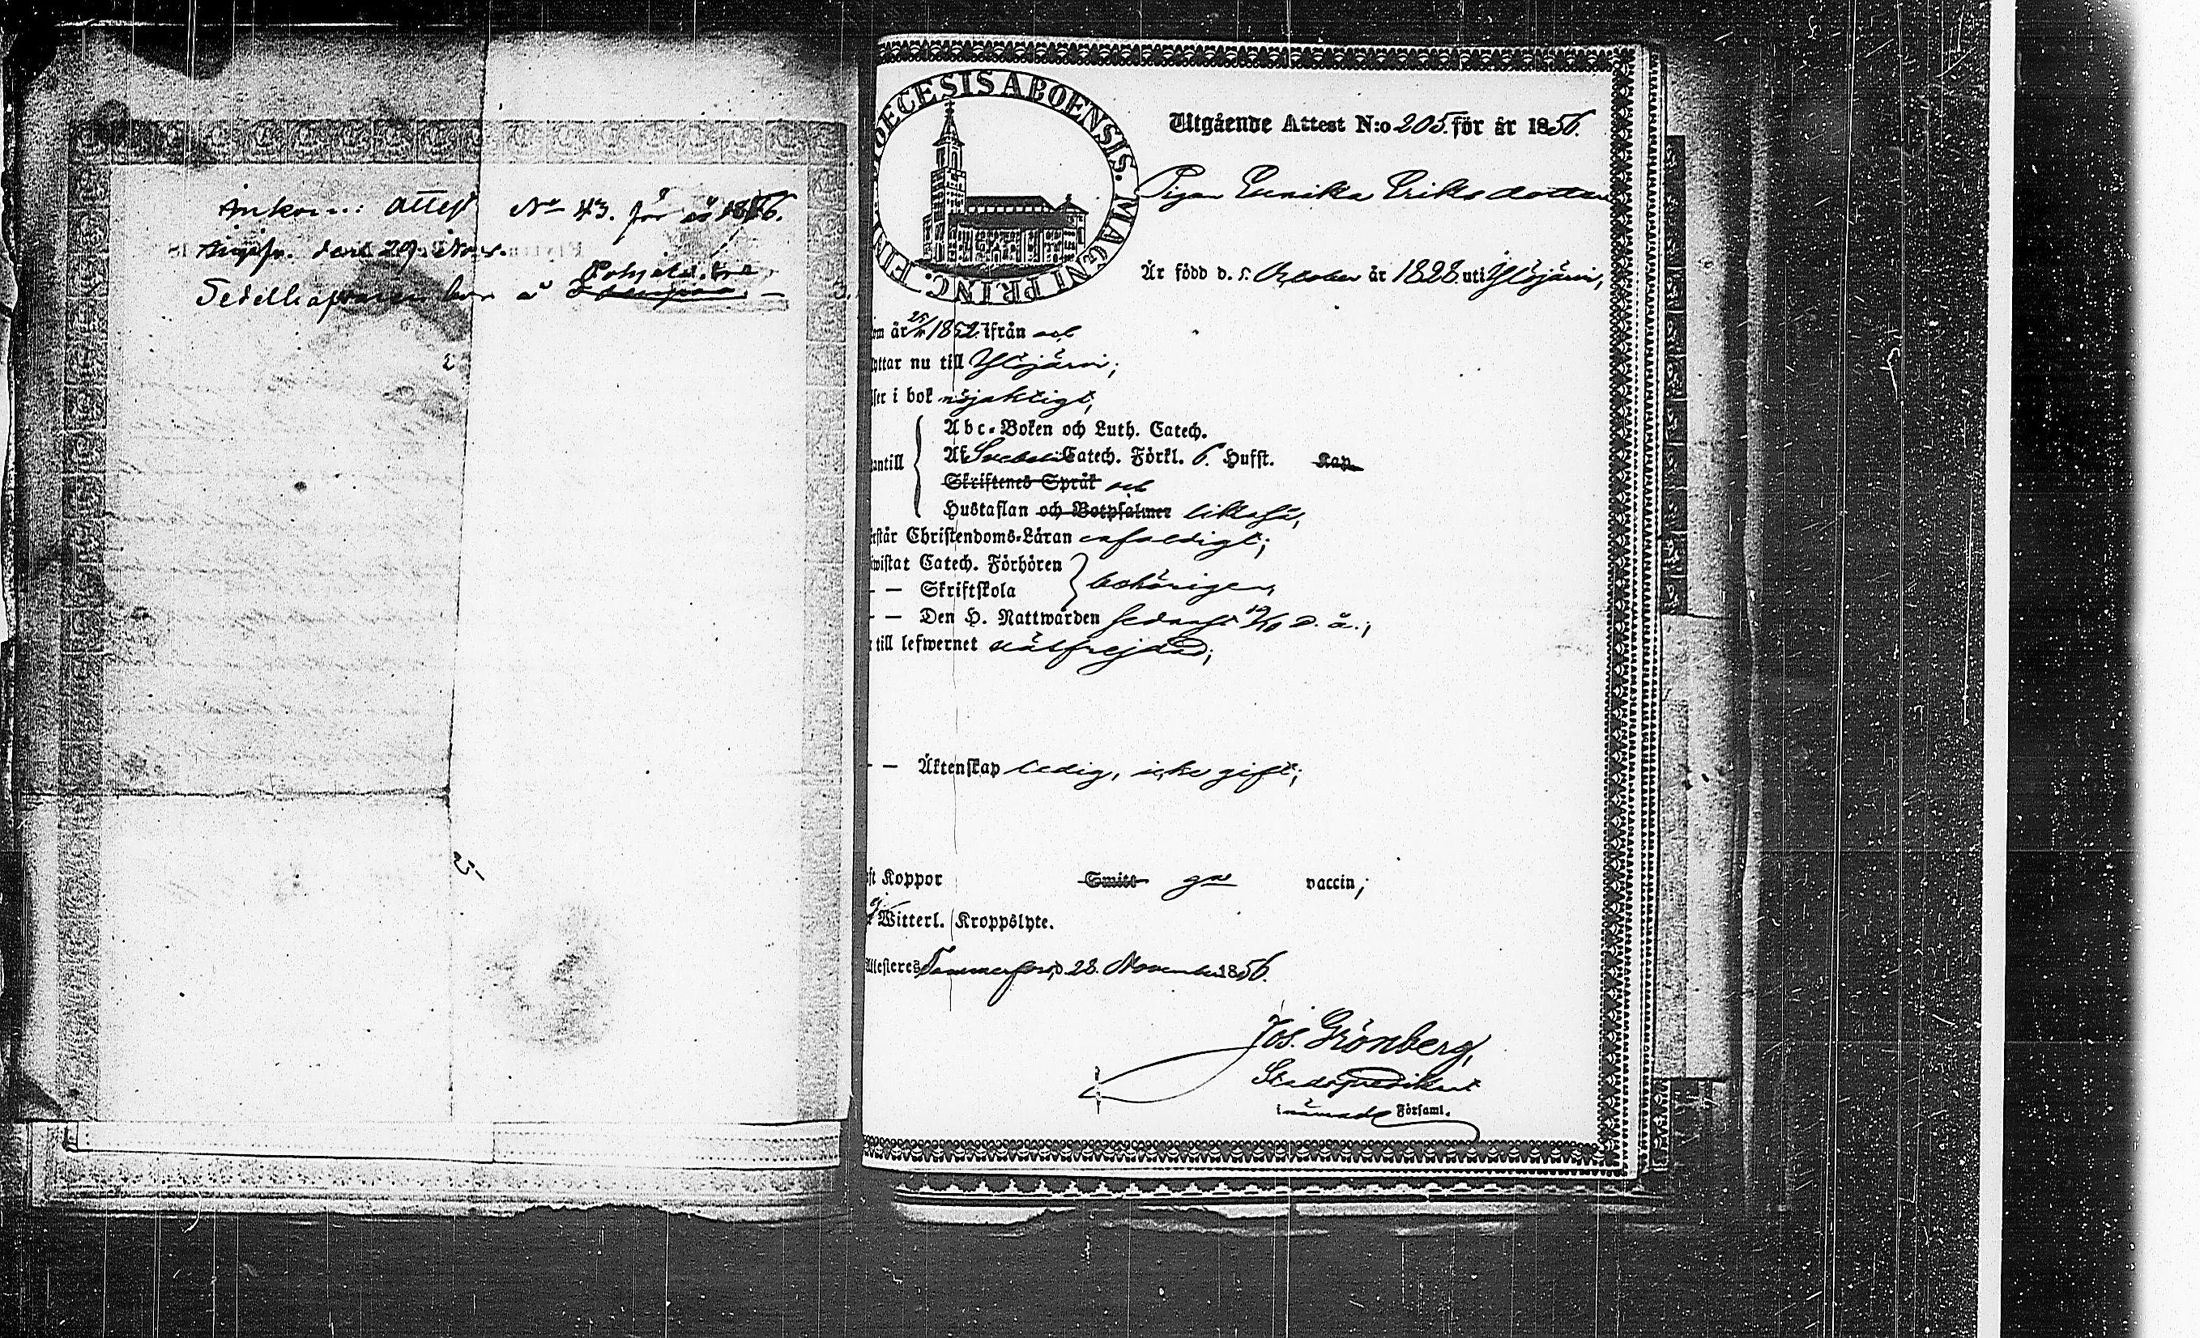 Ankom: attest No 43. för år 1856.
den 29 Nov.
Sedelhafvaren bor å Pohjola
DIOECESIS ABOENSIS. MAGNI PRINC. FINL.
Utgående Attest N:o 205. för år 1856.
Pigan Eerika Eriksdotter
Är född d. 5. October år 1828. uti Ylöjärvi,
år 1852. ifrån och
nu till Ylöjärvi;
i bok nöjaktigt,
Abc-Boken och Luth. Catech.
Af Svebelii Catech. Förkl. 6. Hufst. Kap.
Skriftenes Språk och
Hustaflan och Botpsalmer likaså,
Christendoms-Läran enfaldigt;
Catech. Förhören
— — Skriftskola behörigen,
— — Den H. Nattwarden sednast 19/10 d. å.;
till lefwernet välfrejdad;
— — Äktenskap ledig, icke gift;
Koppor Smitt ga vaccin;
Witterl. Kroppslyte.
Attesteres Tammerfors, d 28. November 1856.
Jos. Grönberg,
Stadspredikant
i nämnde Församl.